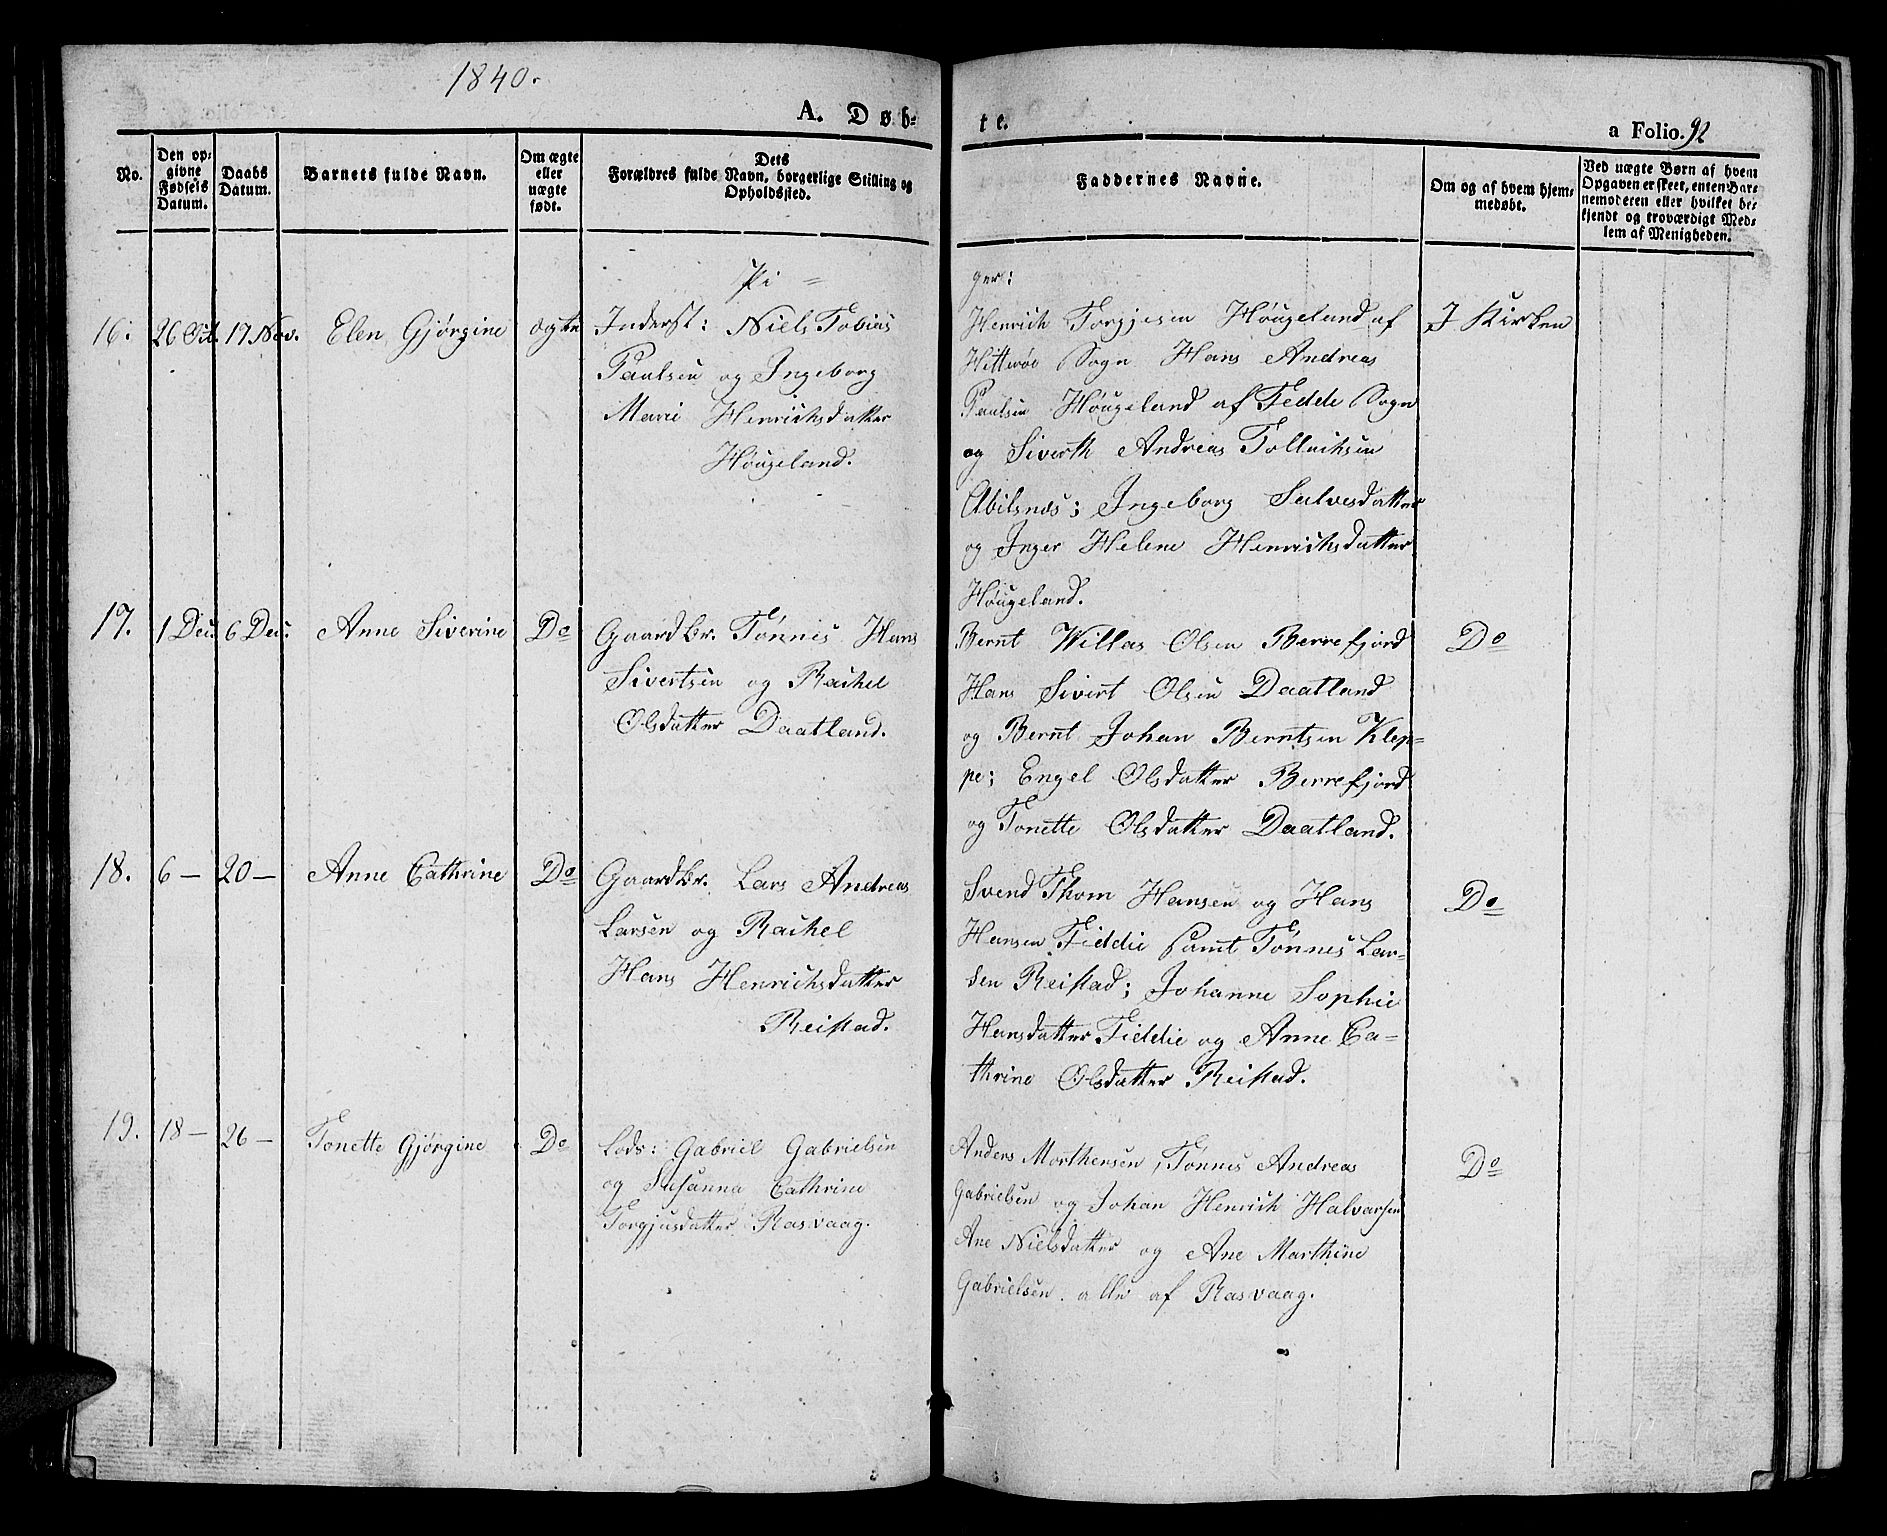 1840.
A. Døb-
te.
a Folio. 92
No.
Den op-
givne
Fødsels
Datum.
Daabs
Datum.
Barnets fulde Navn.
Om ægte
eller
uægte
født.
Dets
Forældres fulde Navn, borgerlige Stilling og
Opholdssted.
Faddernes Navne.
Om og af hvem hjem-
medøbt.
Ved uægte Børn af hvem
Opgaven er skeet, enten Bar-
nemoderen eller hvilket be-
kjendt og troværdigt Med-
lem af Menigheden.
Pi =
ger:
16. 26 Oct. 17 Nov. Elen Gjørgine ægte
Inderst: Niels Tobias
Paulsen og Ingeborg
Marie Henrichsdatter
Høugeland.
Henrich Torgjesen Høugeland af
Hitterøe Sogn Hans Andreas
Paulsen Høugeland af Fedde Sogn
og Siverth Andreas Tollachsen
Abilsnæs; Ingeborg Salvesdatter
og Inger Helene Henrichsdatter
Høugeland.
I Kirken
17. 1 Dec. 6 Dec. Anne Siverine Do
Gaardbr. Tønnes Hans
Sivertsen og Rachel
Olsdatter Daatland.
Bernt Willas Olsen Berrefjord
Hans Sivert Olsen Daatland
og Bernt Johan Berntsen Klep-
pe; Engel Olsdatter Berrefjord
og Tonette Olsdatter Daatland.
Do
18. 6 — 20 — Anne Cathrine Do
Gaardbr. Lars Andreas
Larsen og Rachel
Hans Henrichsdatter
Reistad.
Svend Thom Hansen og Hans
Hansen Fiddie samt Tønnes Lar-
sen Reistad; Johanne Sophie
Hansdatter Fiddie og Anne Ca-
thrine Olsdatter Reistad.
Do
19. 18 — 26 — Tonette Gjørgine Do
Lods: Gabriel Gabrielsen
og Susanna Cathrine
Torgjusdatter Rasvaag.
Anders Morthensen, Tønnes Andreas
Gabrielsen og Johan Henrich Halvarsen
Ane Nielsdatter og Ane Marthine
Gabrielsen. alle af Rasvaag.
Do